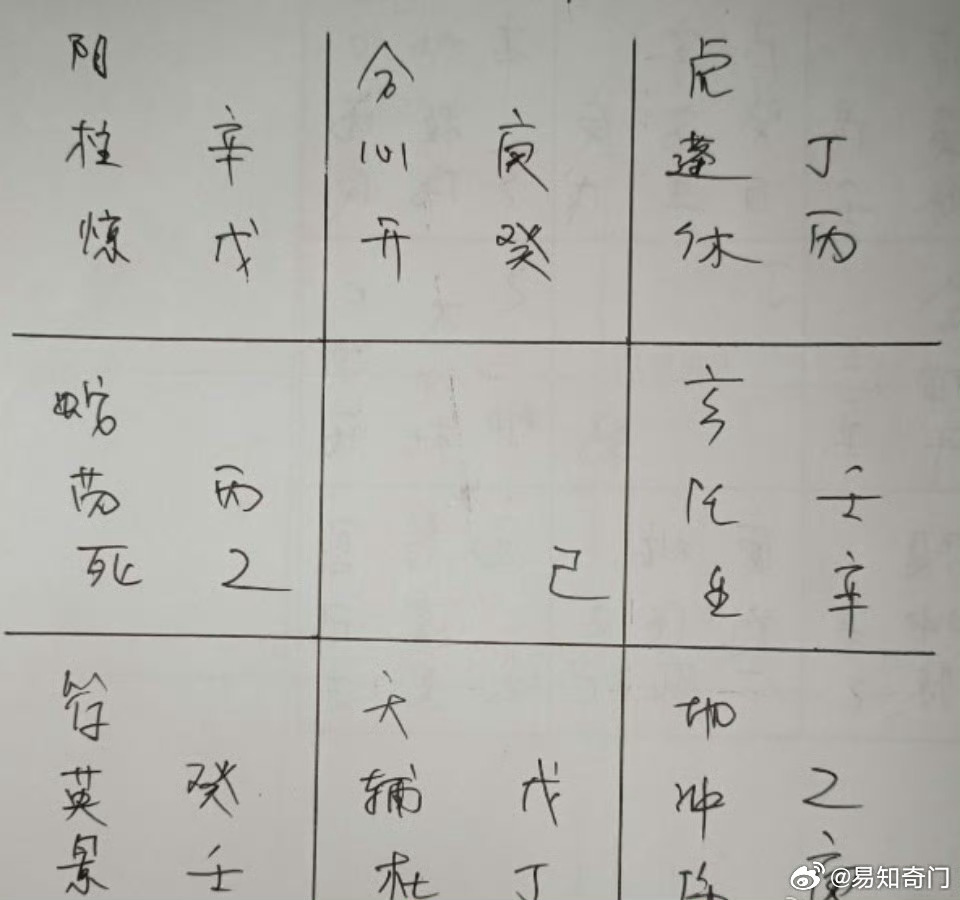 阴 合 虎
柱 辛 心 庚 蓬 丁
惊 戊 开 癸 休 丙
蛇 玄
芮 丙 任 壬
死 乙 己 生 辛
符 天 地
英 癸 辅 戊 冲 乙
景 壬 杜 丁 伤 庚
@易知奇门